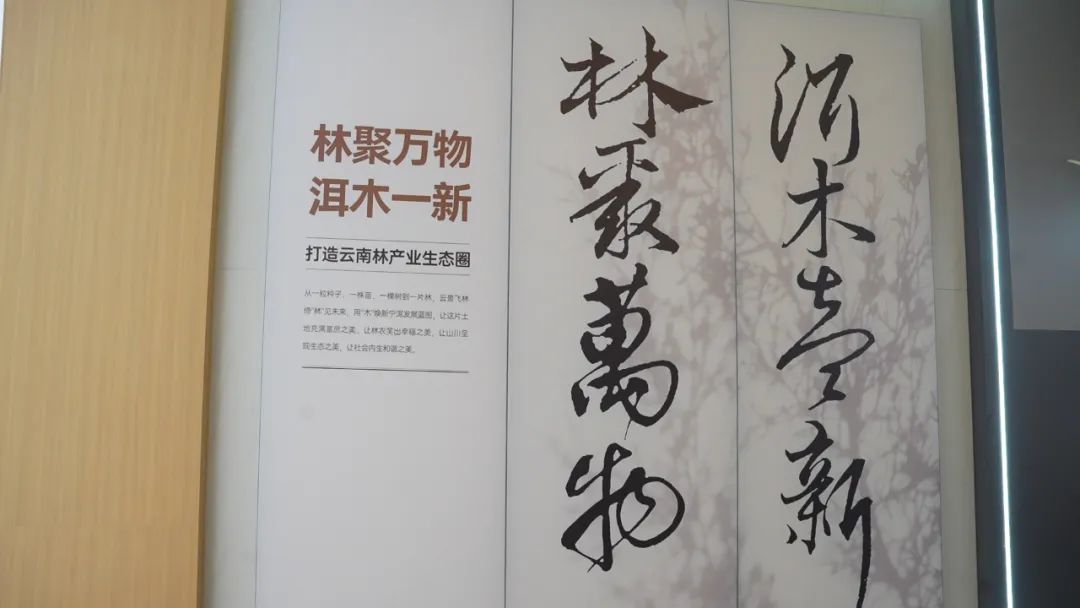 林聚万物
洱木一新
打造云南林产业生态圈
从一粒种子、一株苗、一棵树到一片林，云景飞林
倚“林”见未来，用“木”焕新宁洱发展蓝图，让这片土
地充满富居之美、让林农笑出幸福之美、让山川呈
现生态之美、让社会内生和谐之美。
林聚萬物
洱木壹新